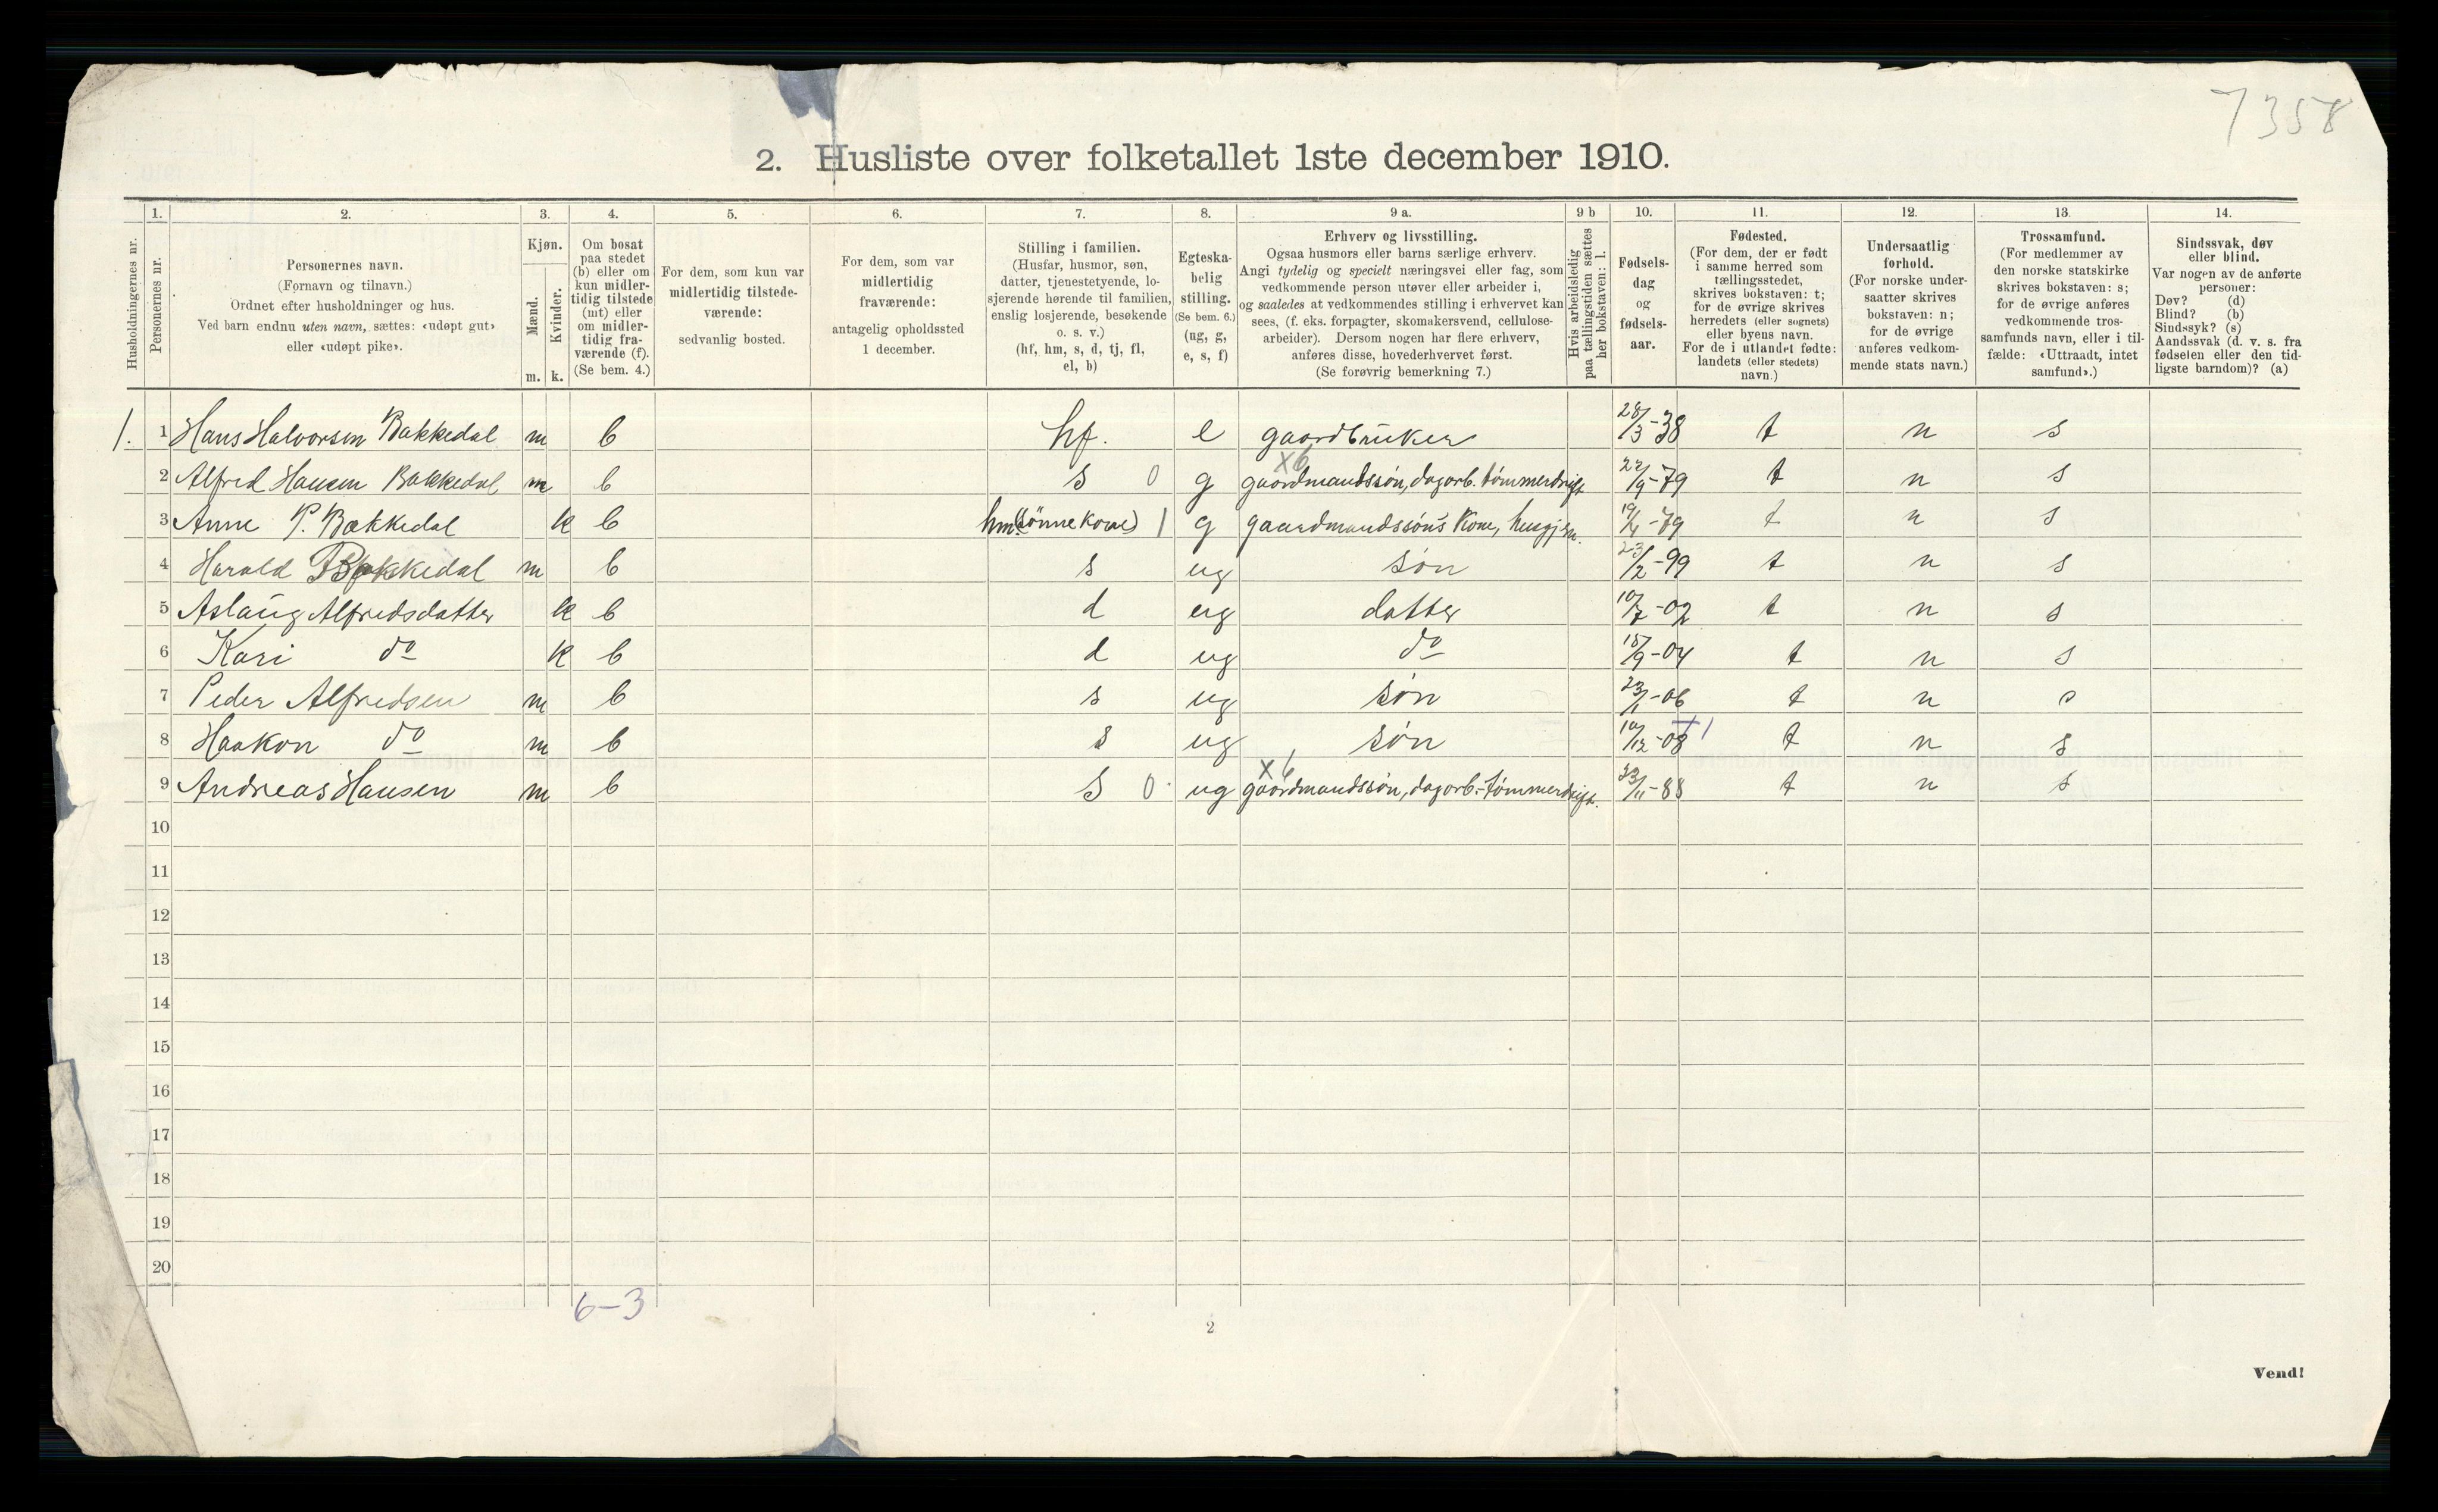 7358
2. Husliste over folketallet 1ste december 1910.
1. 2. 3. 4. 5. 6. 7. 8. 9 a. 9 b 10. 11. 12. 13. 14.
Husholdningernes nr.
Personernes nr.
Personernes navn.
(Fornavn og tilnavn.)
Ordnet efter husholdninger og hus.
Ved barn endnu uten navn, sættes: «udøpt gut»
eller «udøpt pike».
Kjøn.
Mænd.
Kvinder.
m. k.
Om bosat
paa stedet
(b) eller om
kun midler-
tidig tilstede
(mt) eller
om midler-
tidig fra-
værende (f).
(Se bem. 4.)
For dem, som kun var
midlertidig tilstede-
værende:
sedvanlig bosted.
For dem, som var
midlertidig
fraværende:
antagelig opholdssted
1 december.
Stilling i familien.
(Husfar, husmor, søn,
datter, tjenestetyende, lo-
sjerende hørende til familien,
enslig losjerende, besøkende
o. s. v.)
(hf, hm, s, d, tj, fl,
el, b)
Egteska-
belig
stilling.
(Se bem. 6.)
(ug, g,
e, s, f)
Erhverv og livsstilling.
Ogsaa husmors eller barns særlige erhverv.
Angi tydelig og specielt næringsvei eller fag, som
vedkommende person utøver eller arbeider i,
og saaledes at vedkommendes stilling i erhvervet kan
sees, (f. eks. forpagter, skomakersvend, cellulose-
arbeider). Dersom nogen har flere erhverv,
anføres disse, hovederhvervet først.
(Se forøvrig bemerkning 7.)
Hvis arbeidsledig
paa tællingstiden sættes
her bokstaven: l.
Fødsels-
dag
og
fødsels-
aar.
Fødested.
(For dem, der er født
i samme herred som
tællingsstedet,
skrives bokstaven: t;
for de øvrige skrives
herredets (eller sognets)
eller byens navn.
For de i utlandet fødte:
landets (eller stedets)
navn.)
Undersaatlig
forhold.
(For norske under-
saatter skrives
bokstaven: n;
for de øvrige
anføres vedkom-
mende stats navn.)
Trossamfund.
(For medlemmer av
den norske statskirke
skrives bokstaven: s;
for de øvrige anføres
vedkommende tros-
samfunds navn, eller i til-
fælde: «Uttraadt, intet
samfund».)
Sindssvak, døv
eller blind.
Var nogen av de anførte
personer:
Døv? (d)
Blind? (b)
Sindssyk? (s)
Aandssvak (d. v. s. fra
fødselen eller den tid-
ligste barndom)? (a)
1. 1 Hans Halvorsen Bakkedal m b hf. e gaardbruker 28/3-38 t n s
2 Alfred Hansen Bakkedal m b s 0 g x6 gaardmandssøn, dagarb. tømmerdrift 22/9-79 t n s
3 Anne P. Bakkedal k b hm. (sønnekone) 1 g gaardmandssøn's kone, husgjern. 19/4-79 t n s
4 Harald Bakkedal m b s ug søn 23/2-99 t n s
5 Aslaug Alfredsdatter k b d ug datter 10/7-02 t n s
6 Kari do k b d ug do 18/9-04 t n s
7 Peder Alfredsen m b s ug søn 23/1-06 t n s
8 Haakon do m b s ug søn 10/12-08 t n s
9 Andreas Hansen m b s 0 ug x6 gaardmandssøn, dagarb.-tømmerdrift. 23/11-88 t n s
10
11
12
13
14
15
16
17
18
19
20
6-3
2
Vend!